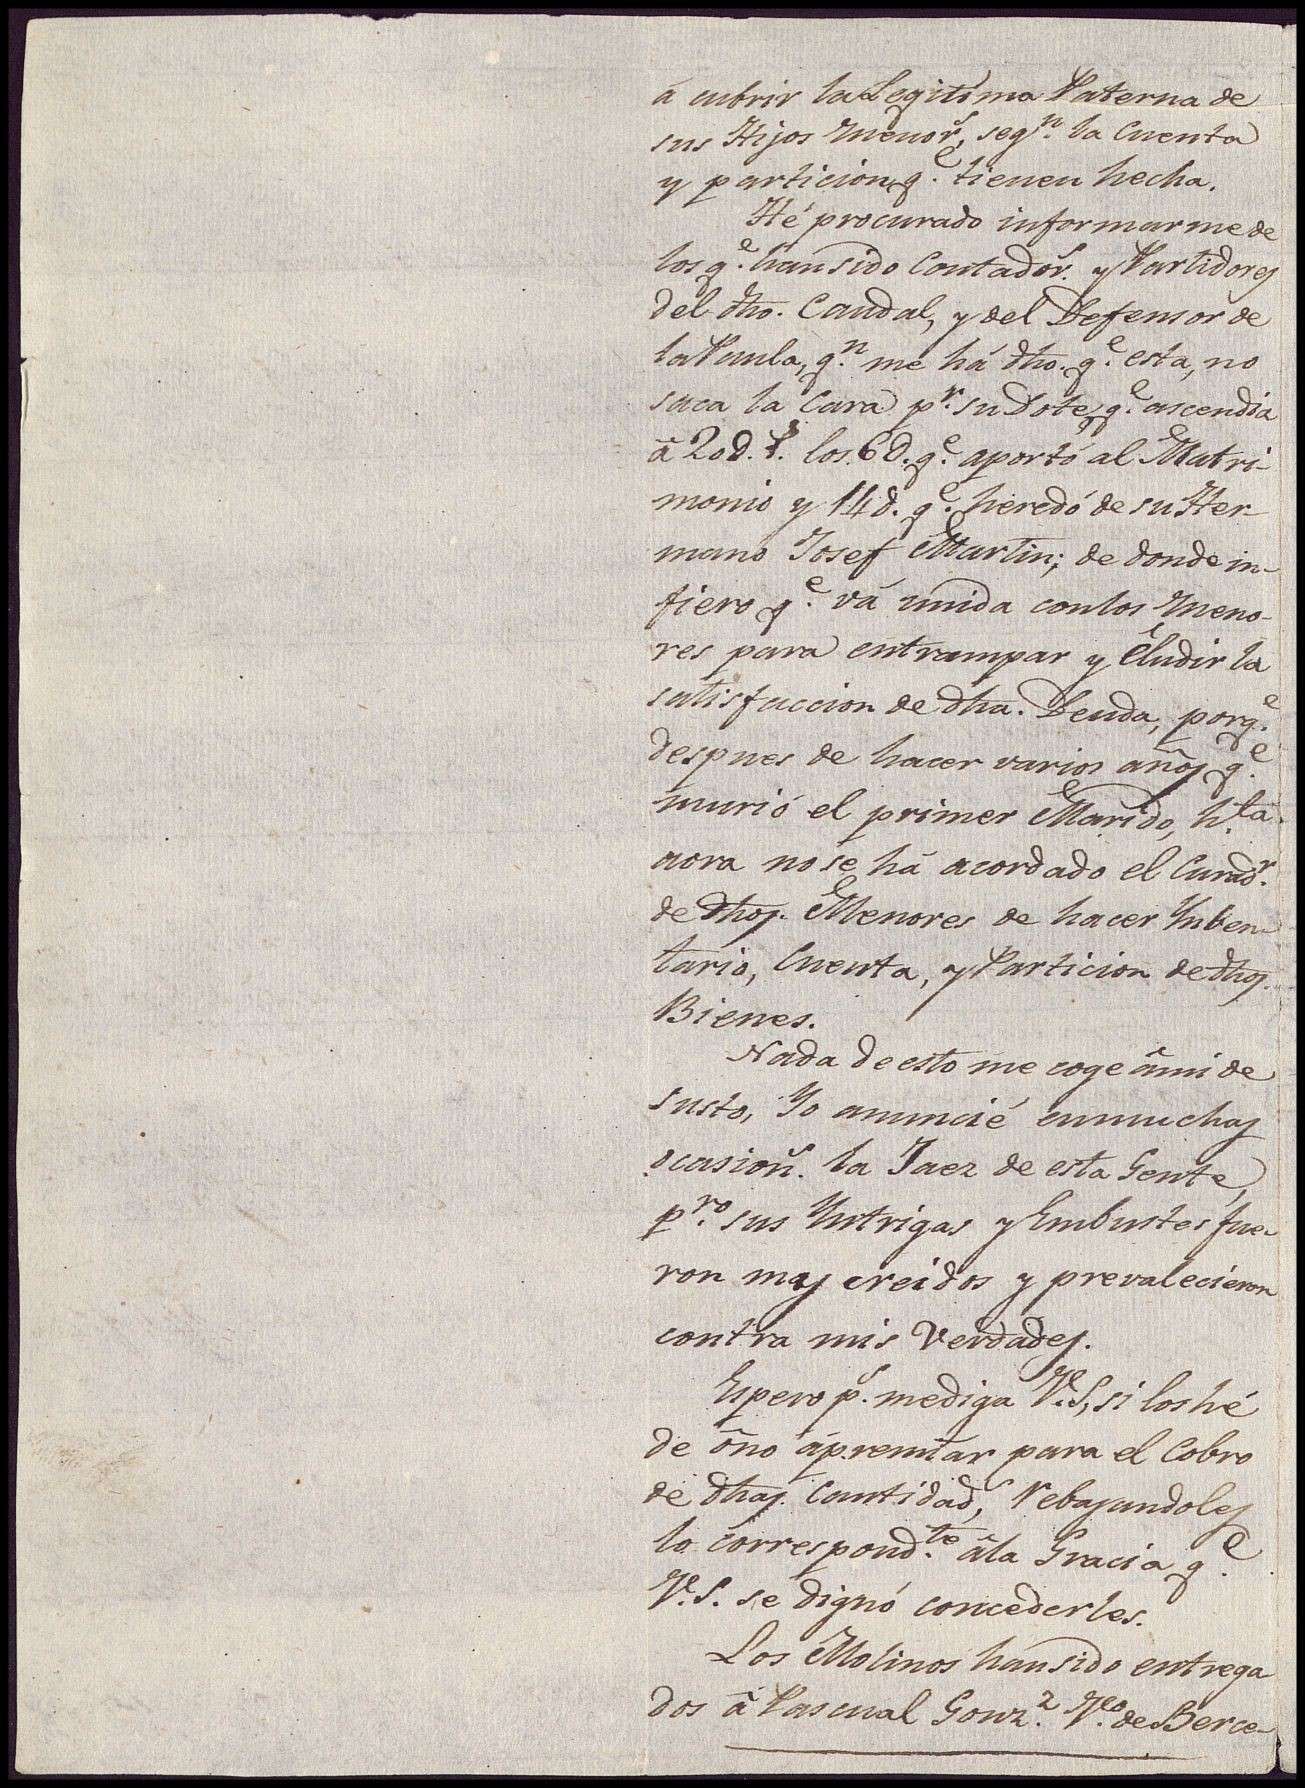 á cubrir la Legitima Paterna de
sus Hijos menor.s, seg.n la Cuenta
y particion q.e tienen hecha.
Hé procurado informarme de
los q.e han sido Contador.s y Partidores
del dho. Caudal, y del Defensor de
la Paula, q.n me há dho. q.e esta, no
saca la Cara p.r su Dote q.e ascendia
â 20d. r.s los 6d. q.e aportó al Matri-
monio y 14d. q.e heredó de su Her-
mano Josef Martin; de donde in-
fiero q.e vá unida con los meno-
res para entrampar y eludir la
satisfaccion de dha. Deuda, porq.e
despues de hacer varios años q.e
murió el primer Marido, h.ta
aora no se há acordado el Curad.r
de dhos. Menores de hacer Inben-
tario, Cuenta, y Particion de dhos.
Bienes.
Nada de esto me coge âmi de
susto, Yo anuncié en muchas
ocasion.s la Jaez de esta Gente,
p.ro sus Intrigas y Embustes fue-
ron mas creidos y prevalecieron
contra mis Verdades.
Espero p.s me diga V.S, si los hé
de ôno ápremiar para el Cobro
de dhas. Cantidad.s, rebajandoles
lo correspond.te âla Gracia q.e
V.S. se dignó concederles.
Los Molinos han sido entrega
dos â Pascual Gonz.z V.o de Berce-